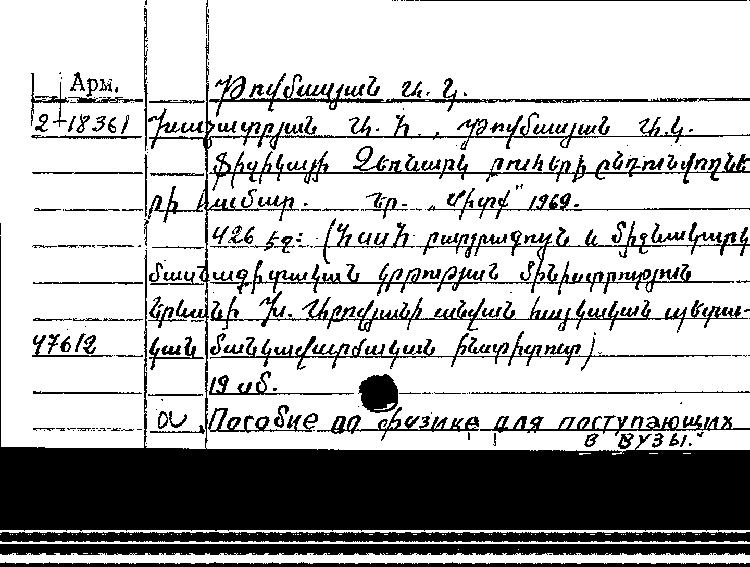 Арм.
Թովմասյան Ա. Կ.
2-18361 Խաչատրյան Ա. Հ., Թովմասյան Ա. Կ.
Ֆիզիկայի Ձեռնարկ բուհերի ընդունվողնե
րի համար. Եր. „Միտք" 1969.
426 էջ: (ՀՍՍՀ բարձրագույն և միջնակարգ
մասնագիտական կրթության մինիստրություն
Երևանի Խ. Աբովյանի անվան հայկական պետա-
47612 կան մանկավարժական ինստիտուտ)
19 սմ.
Пособие по физике для поступающих
в ВУЗЫ.